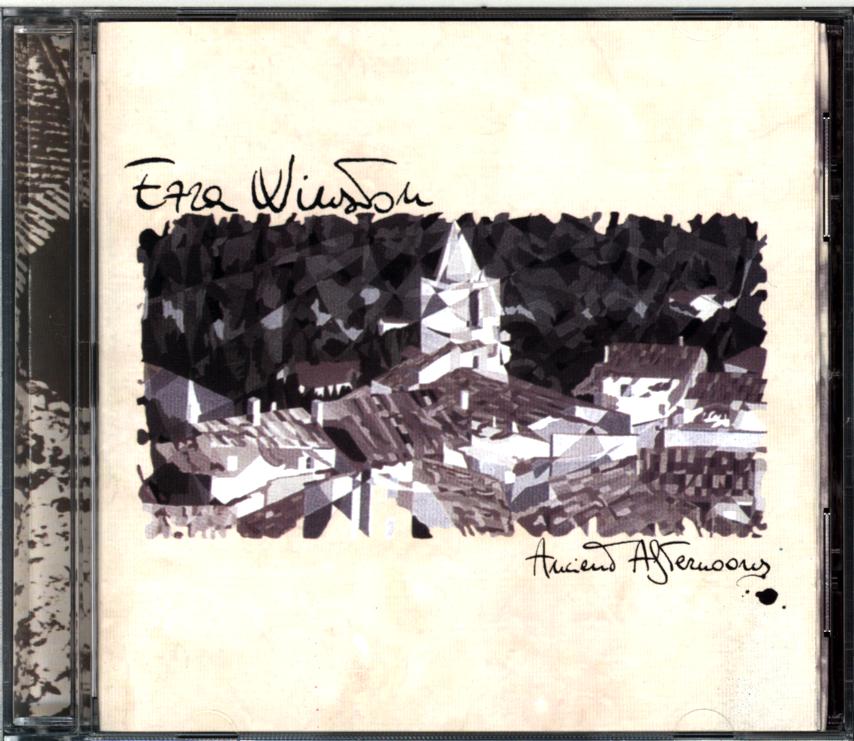 Ezra Winston
Ancient Afternoons